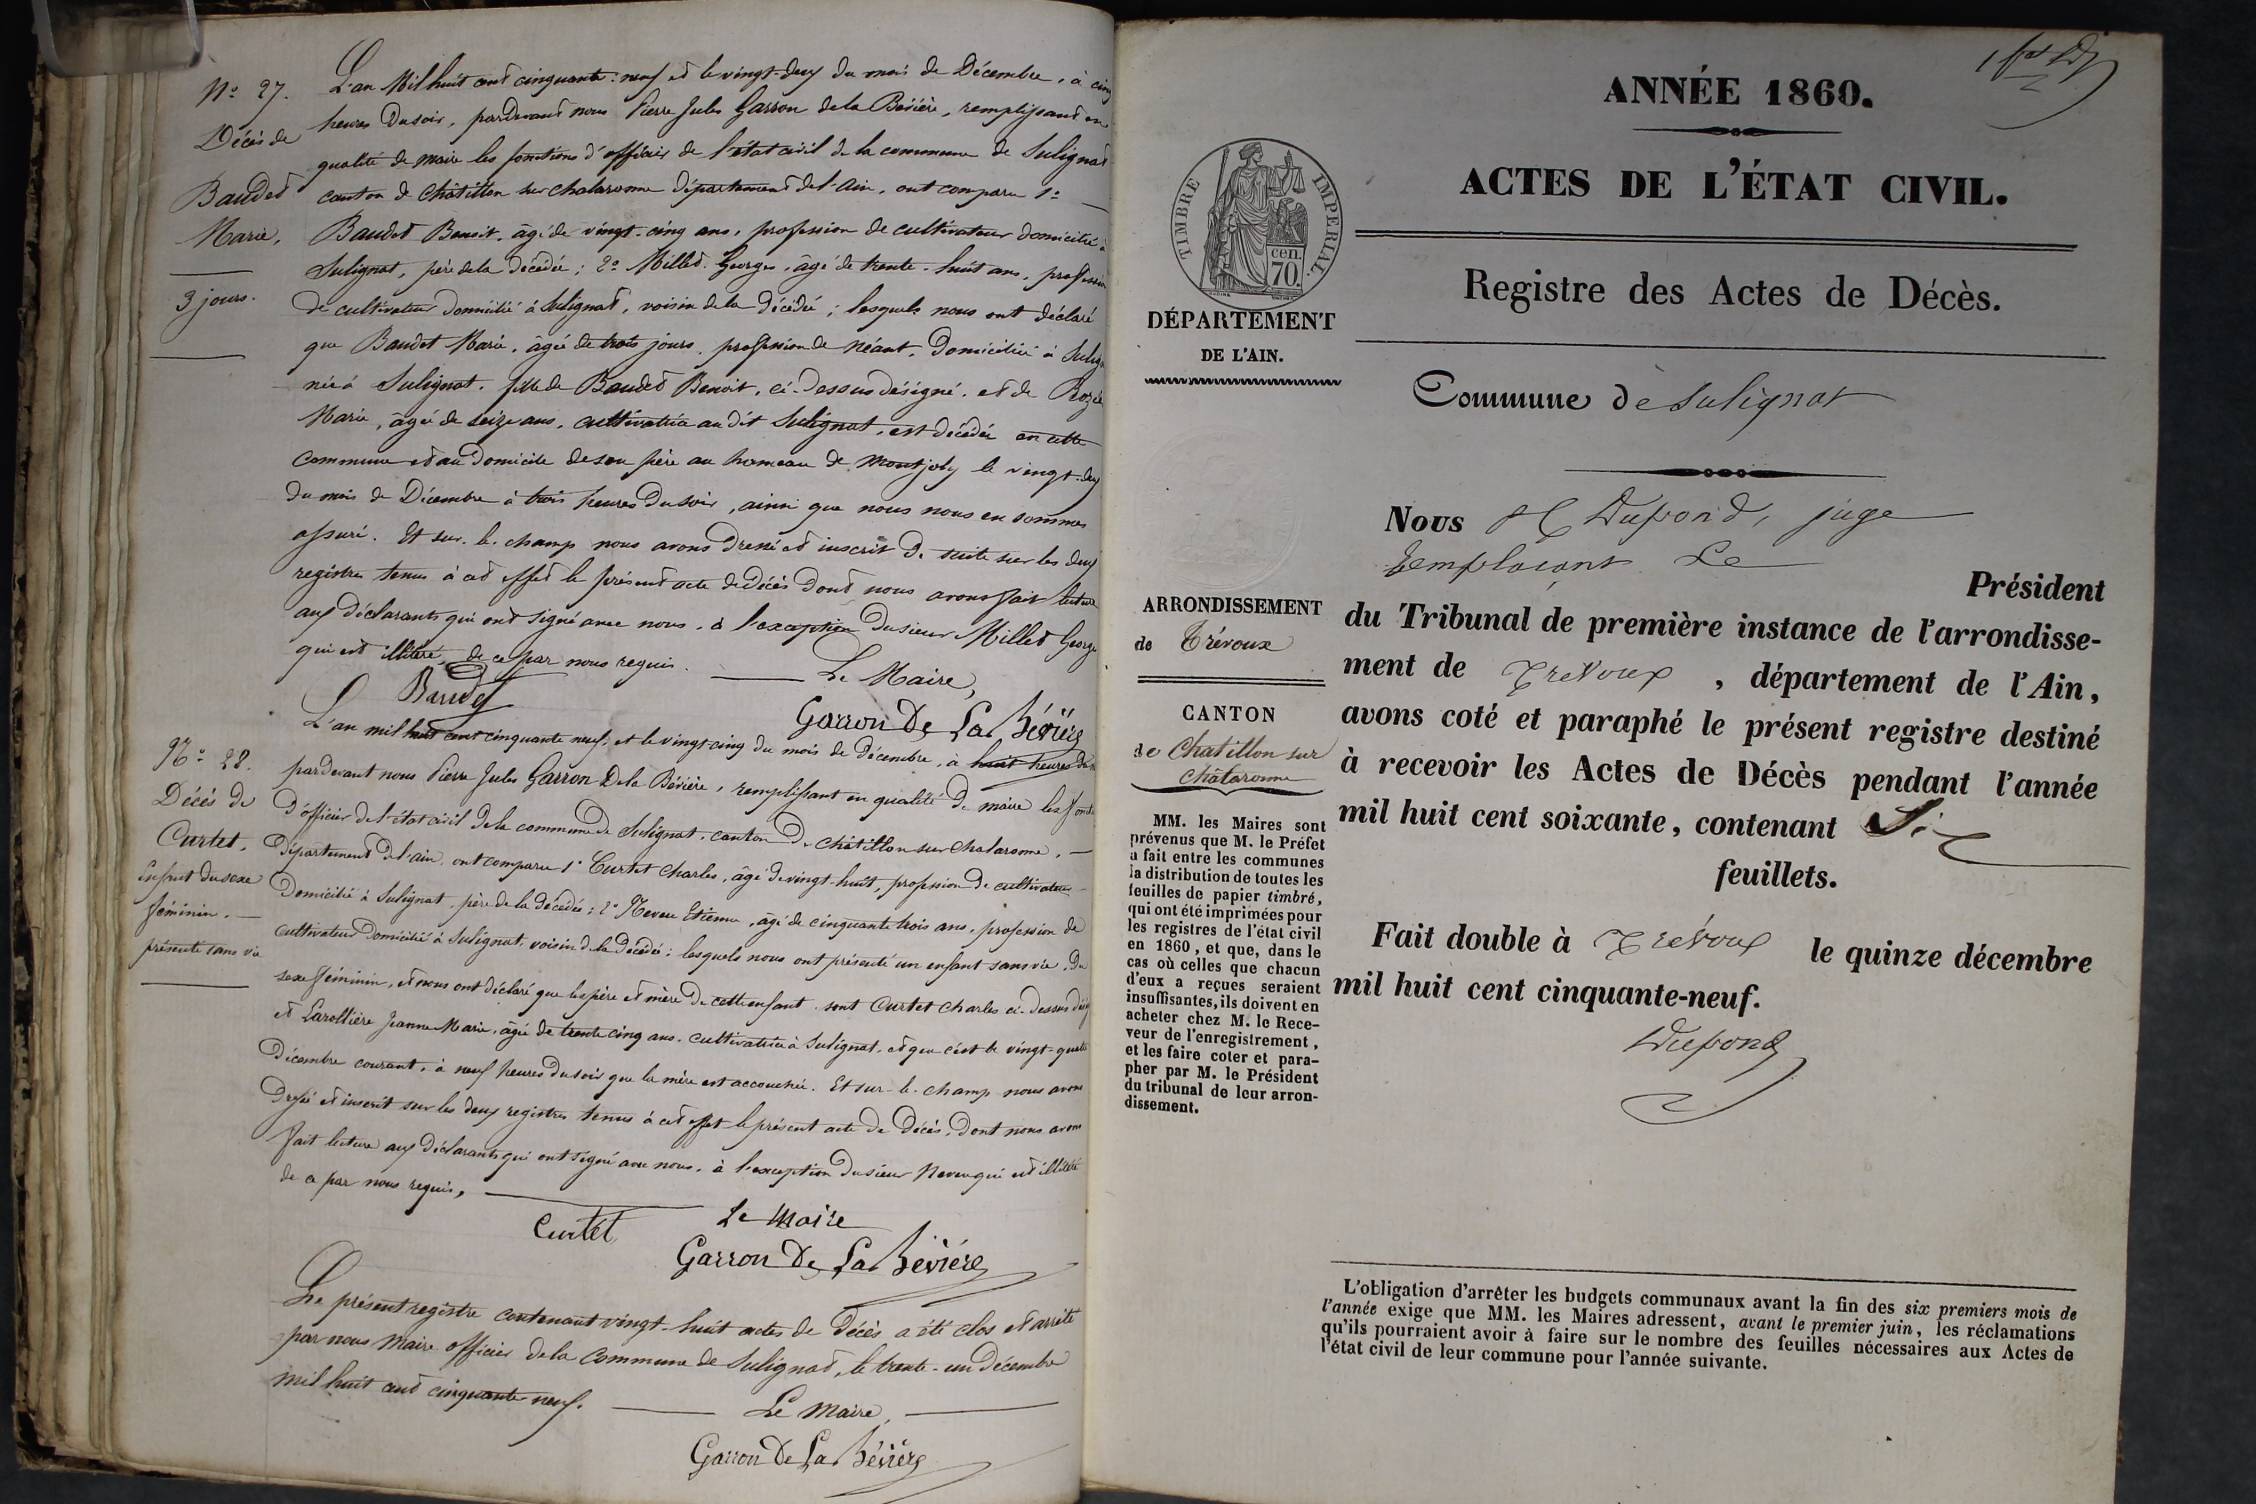 N.º 27.
Décès de
Baudet
Marie,
3 jours.
L'an Mil huit cent cinquante-neuf et le vingt-deux du mois de Décembre, à cinq
heures Du soir, pardevant nous Pierre Jules Garron de la Bévière, remplissant en
qualité de maire les fonctions d'officier de l'état civil de la commune de Sulignat
canton de Châtillon sur chalaronne département de l'Ain, ont comparu 1.º
Baudet Benoit, âgé de vingt-cinq ans, profession de cultivateur domicilié à
Sulignat, père de la décédée; 2.º Millet Georges, âgé de trente-huit ans, profession
de cultivateur domicilié à Sulignat, voisin de la décédée; lesquels nous ont déclaré
que Baudet Marie, âgée de trois jours, profession de Néant, Domiciliée à
née à Sulignat, fille de Baudet Benoit, ci-Dessus désigné, et de
Marie, âgée de seize ans, cultivatrice au dit Sulignat, est décédée en cette
commune et au Domicile de son père au hameau de Montjoly le vingt-deux
du mois de Décembre à trois heures Du soir, ainsi que nous nous en sommes
assuré. Et sur-le-champ nous avons Dressé et inscrit De suite sur les deux
registres tenus à cet effet le présent acte de décès Dont nous avons fait lecture
aux déclarants qui ont signé avec nous, à l'exception Du sieur Millet George
qui est illitéré, de ce par nous requis.
Le Maire,
Baudet
Garron De La Bévière
N.º 28.
Décès de
Curtet,
Enfant du sexe
féminin,
présenté sans vie
L'an mil huit cent cinquante neuf, et le vingt cinq du mois de Décembre, à huit heures du
pardevant nous Pierre Jules Garron De la Bévière, remplissant en qualité De maire les
D'officier de l'état civil De la commune de Sulignat, canton De Châtillon sur Chalaronne,
département de l'ain, ont comparu 1.º Curtet Charles, âgé de vingt-huit, profession de cultivateur
Domicilié à Sulignat, père de la décédée; 2.º Neveu Etienne, âgé de cinquante trois ans, profession de
cultivateur Domicilié à Sulignat, voisin de la Décédée; lesquels nous ont présenté un enfant sans vie, Du
sexe féminin, et nous ont déclaré que les père et mère De cette enfant sont Curtet Charles ci-Dessus
et Larollière Jeanne Marie, âgée de trente cinq ans, cultivatrice à Sulignat, et que c'est le vingt-quatre
Décembre courant, à neuf heures du soir que la mère est accouchée. Et sur-le-champ nous avons
Dressé et inscrit sur les deux registres tenus à cet effet le présent acte de Décès, Dont nous avons
fait lecture aux déclarants qui ont signé avec nous, à l'exception Du sieur Neveu qui est illitéré
de ce par nous requis,
Le Maire
Curtet
Garron De La Bévière
Le présent registre contenant vingt-huit actes de Décès a été clos et arrêté
par nous Maire officier de la commune de Sulignat, le trente-un Décembre
mil huit cent cinquante-neuf.
Le Maire,
Garron De La Bévière
ANNÉE 1860.
ACTES DE L'ÉTAT CIVIL.
Registre des Actes de Décès.
TIMBRE IMPERIAL.
cen.
70.
DÉPARTEMENT
DE L'AIN.
Commune de Sulignat
Nous Dupond, juge
Remplaçant Le
Président
du Tribunal de première instance de l'arrondisse-
ment de Trévoux, département de l'Ain,
avons coté et paraphé le présent registre destiné
à recevoir les Actes de Décès pendant l'année
mil huit cent soixante, contenant Six
feuillets.
Fait double à Trévoux le quinze décembre
mil huit cent cinquante-neuf.
Dupond
ARRONDISSEMENT
de Trévoux
CANTON
de Chatillon sur
Chalaronne
MM. les Maires sont
prévenus que M. le Préfet
a fait entre les communes
la distribution de toutes les
feuilles de papier timbré,
qui ont été imprimées pour
les registres de l'état civil
en 1860, et que, dans le
cas où celles que chacun
d'eux a reçues seraient
insuffisantes, ils doivent en
acheter chez M. le Rece-
veur de l'enregistrement,
et les faire coter et para-
pher par M. le Président
du tribunal de leur arron-
dissement.
L'obligation d'arrêter les budgets communaux avant la fin des six premiers mois de
l'année exige que MM. les Maires adressent, avant le premier juin, les réclamations
qu'ils pourraient avoir à faire sur le nombre des feuilles nécessaires aux Actes de
l'état civil de leur commune pour l'année suivante.